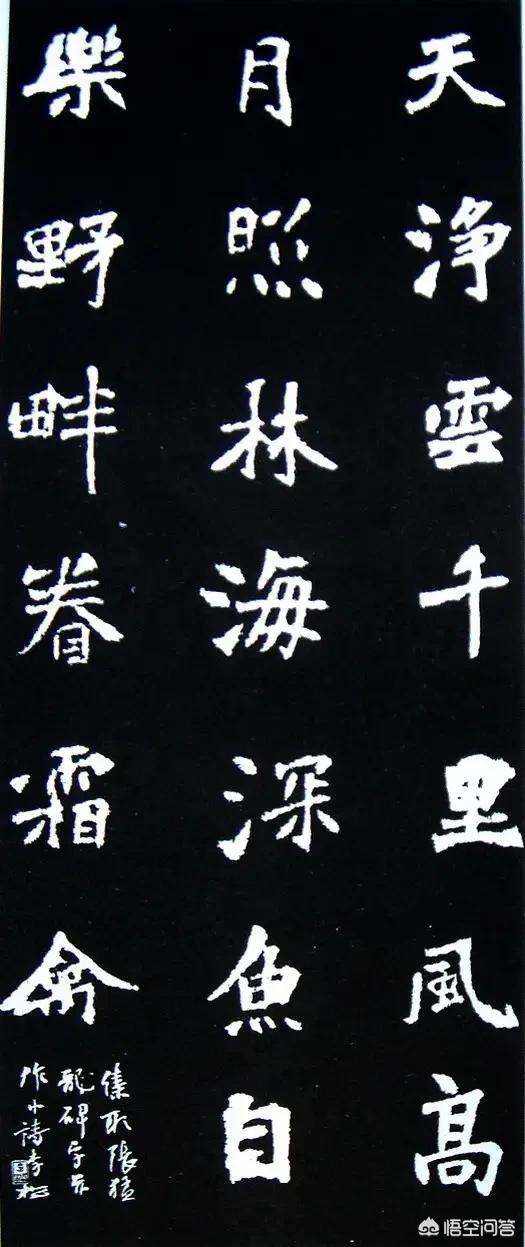 天淨雲千里風高
月照林海深魚自
樂野畔眷霜禽
取張猛
龍碑字
作小詩
悟空问答